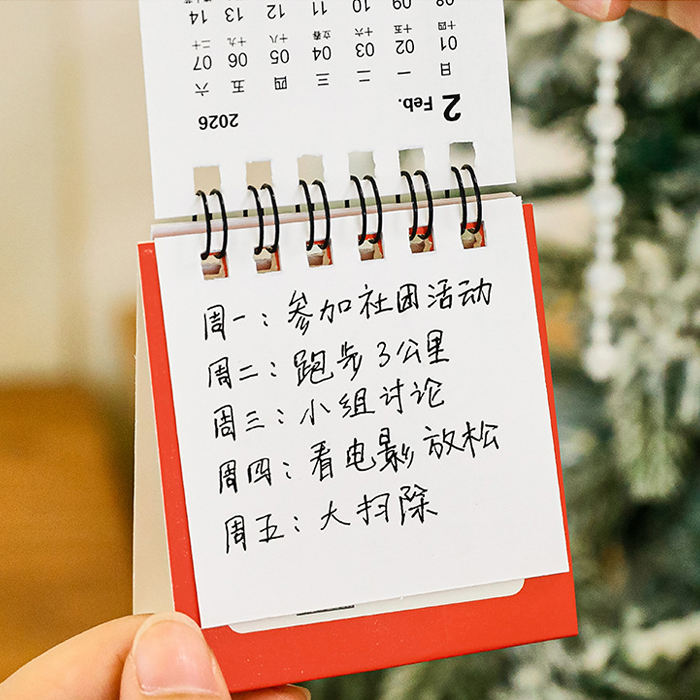 2 Feb. 2026
日 一 二 三 四 五 六
01 02 03 04 05 06 07
十四 十五 十六 立春 十八 十九 二十
08 09 10 11 12 13 14
周一：参加社团活动
周二：跑步3公里
周三：小组讨论
周四：看电影放松
周五：大扫除